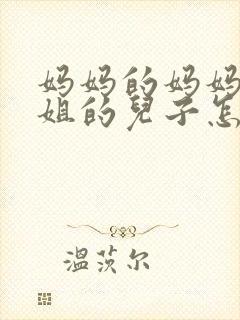 妈妈的妈妈
姐的兒子怎
温茨尔